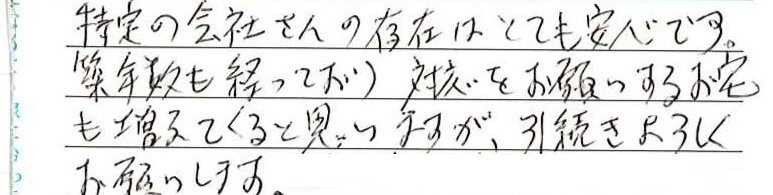 特定の会社さんの存在はとても安心です。
築年数も経っており対応をお願いするお宅
も増えてくると思いますが、引続きよろしく
お願いします。